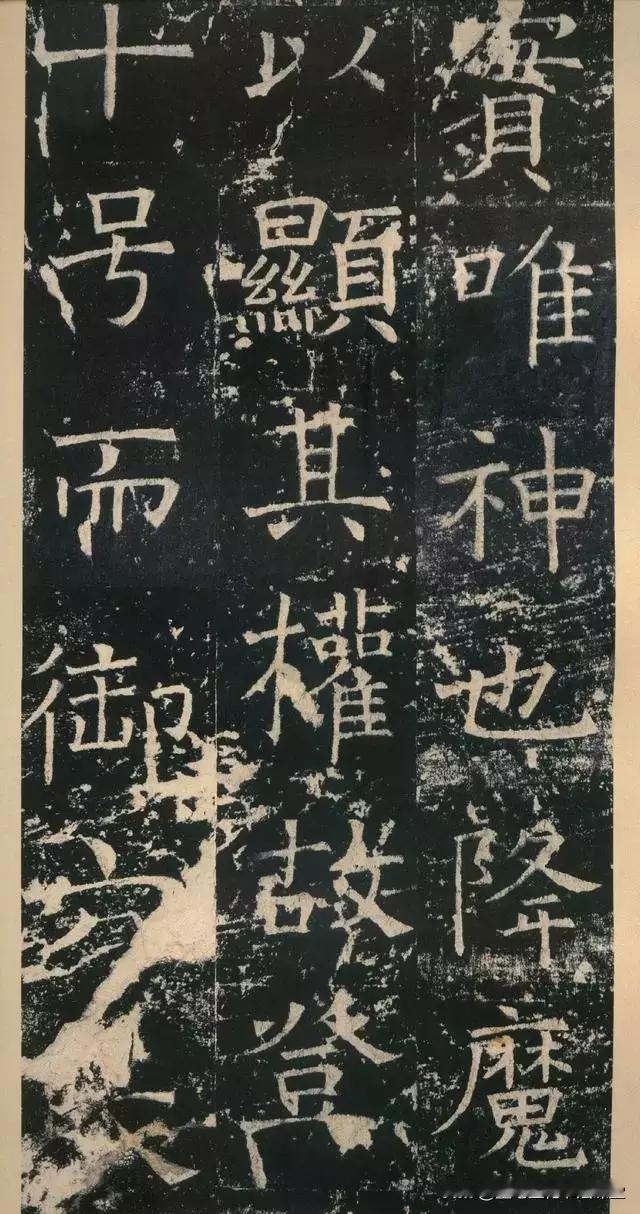 唯神也降魔
以顯其權故登
十号而御